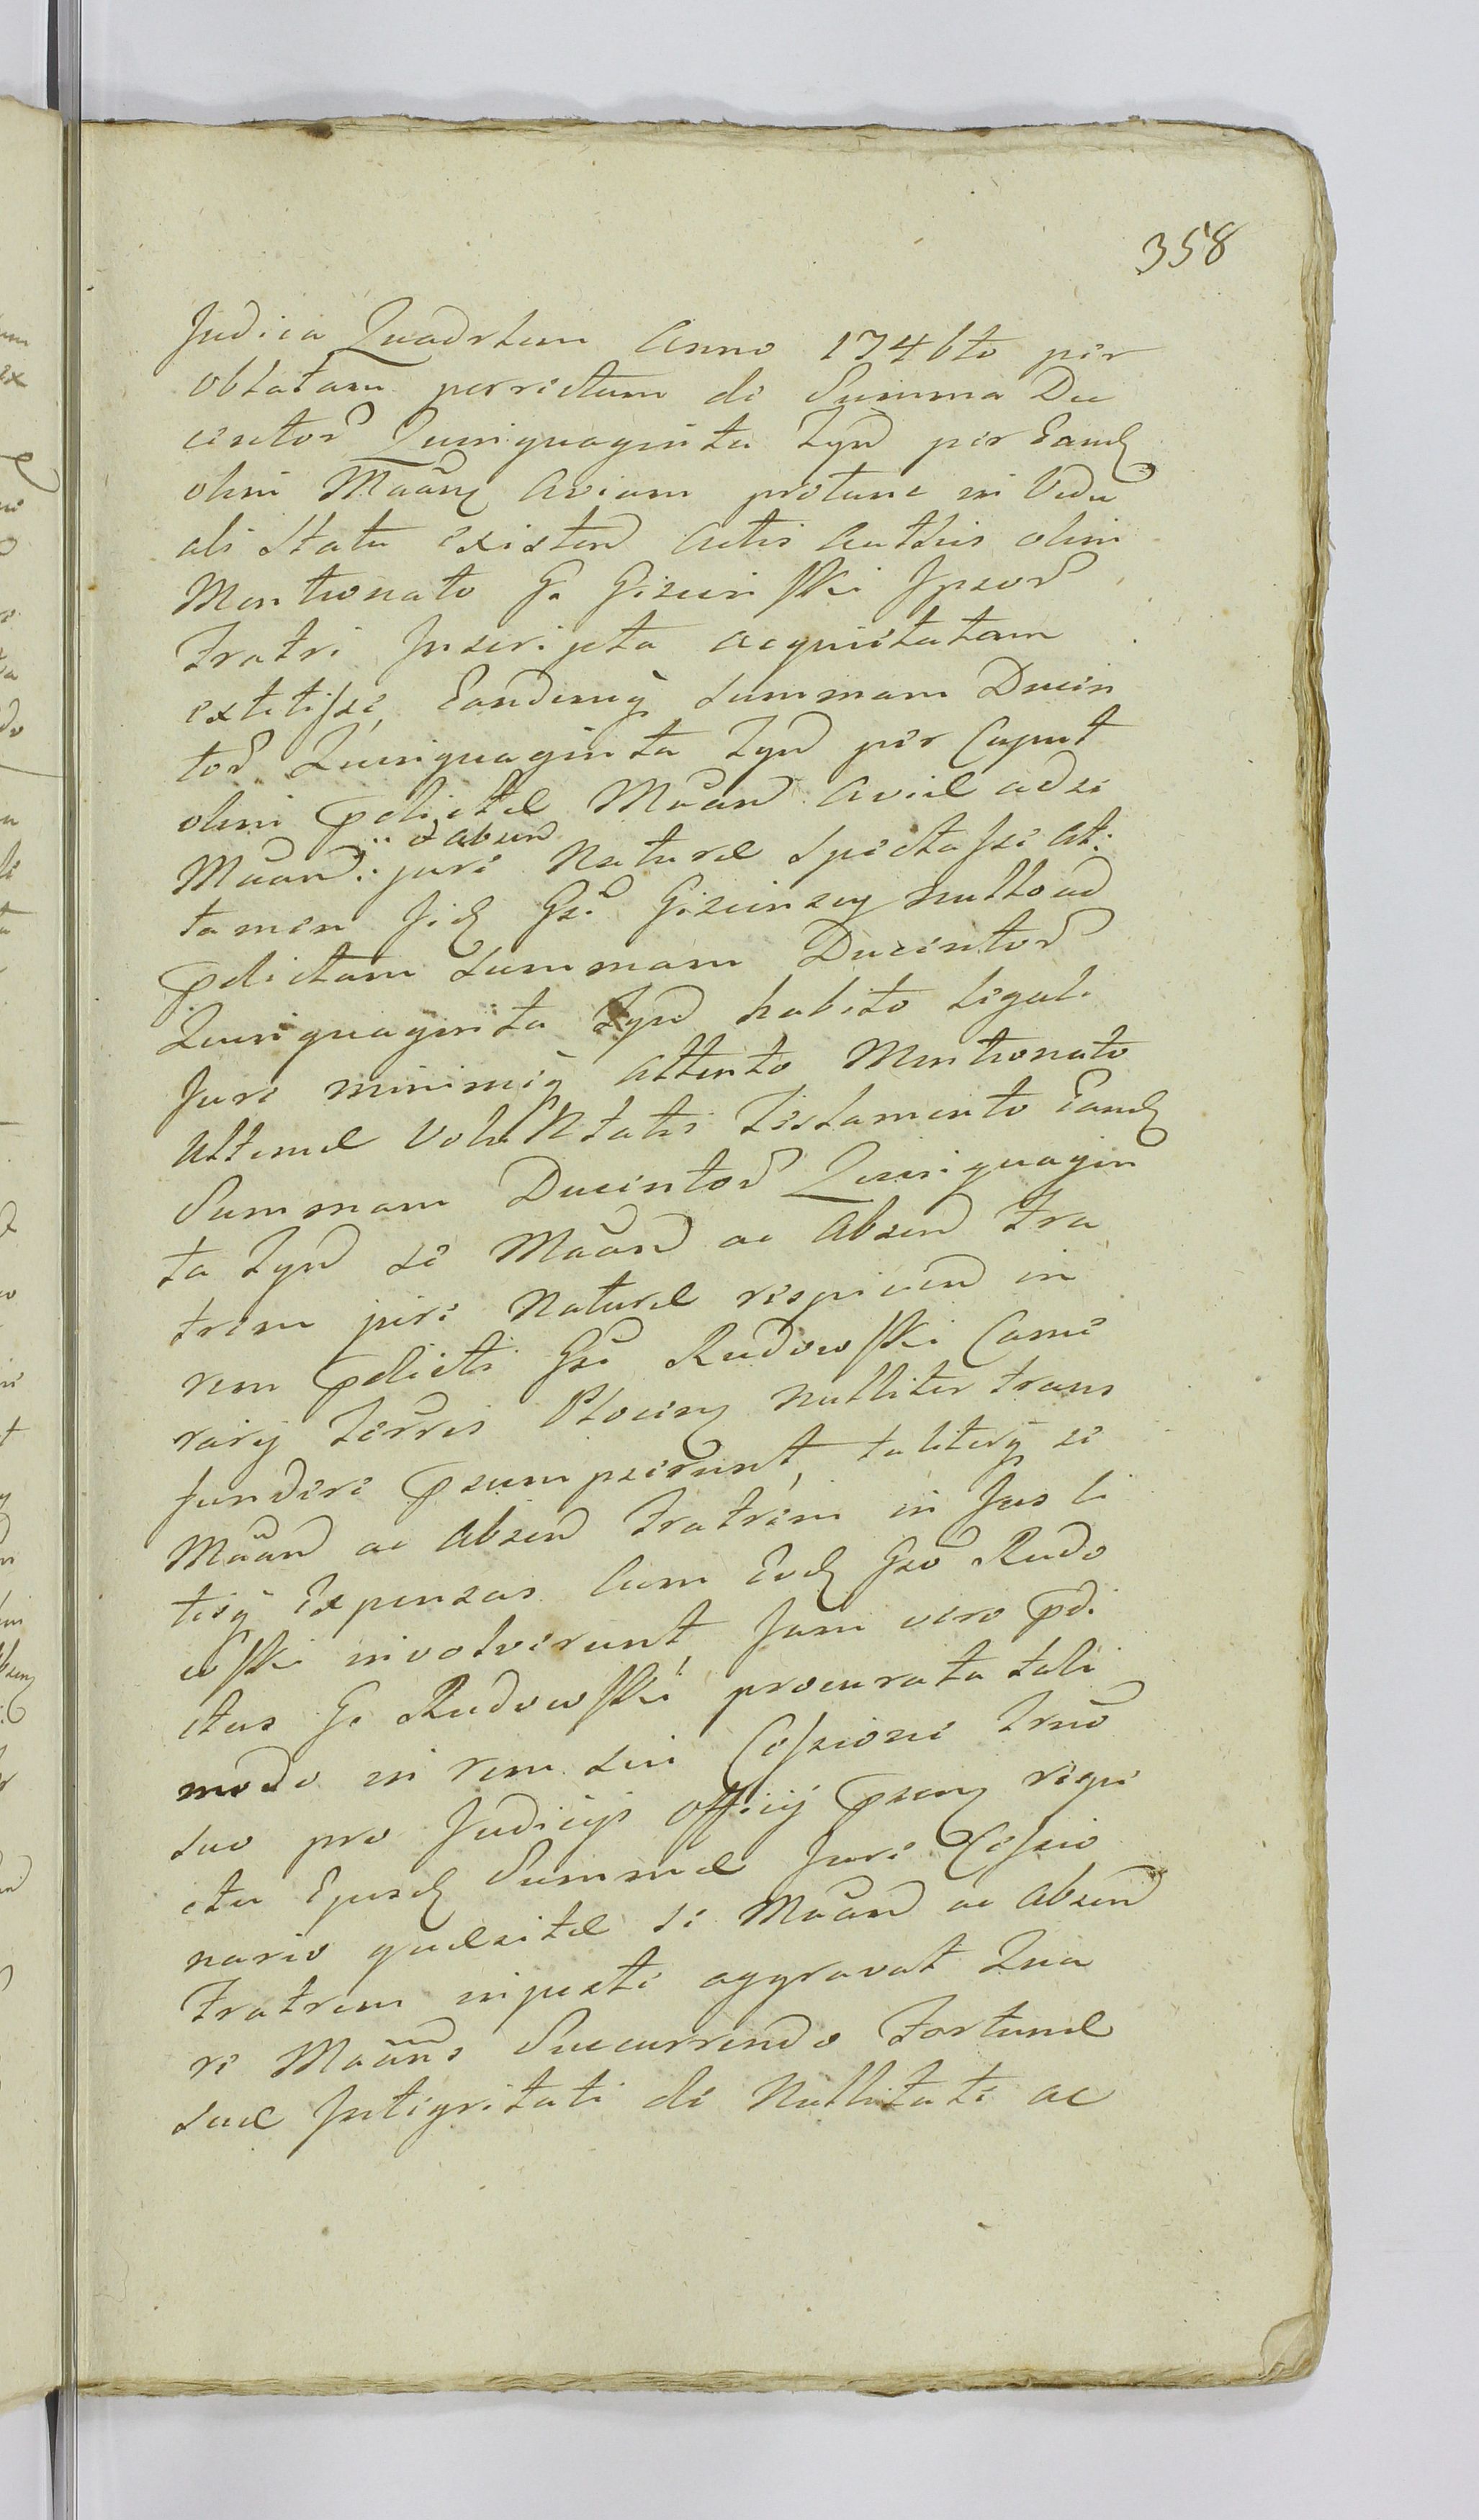 358
Judicia Quadrtum Anno 1746to per
oblatam perrectum de Summa Du
centor Quinquaginta Tyn per Eand
olim Maan Aviam protunc in Vidu
ali Statu existen Actis Authis olim
Mentionato G. Gizinski Ipsor
Fratri Inscripta acquietatam
extitisse, Eandemq summam Ducen
tor Quinquaginta Tyn per Caput
olim pdictae Maan Aviae ad se
Maan et absen jure Naturae spectasse at
tamen Iid Gsi Gizinscy nullo ad
pdictam summam Ducentor
Quinquaginta Tyn habito legali
Jure minimeq attento Mentionato
Ultimae Voluntatis Testamento Eand
Summam Ducentor Quinquagin
ta Tyn se Maan ac Absen Fra
trem jure Naturae respicien in
rem pdicti Gsi Rudowski Came
rarij Terris Plocen nulliter trans
fundere psumpserunt, taliterq se
Maan ac Absen Fratrem in Jus li
tisq Expensas cum Eod Gso Rudo
wski involverunt, Jam vero pdi
ctus G. Rudowski procurata tali
modo in rem sui Cessione Trno
suo pro Judicijs Officij psen respe
ctu Ejusd Summae Jure Cessio
nario quaesitae se Maan ac Absen
Fratrem injuste aggravat Qua
re Maans Succurrendo Fortunae
suae Integritati de Nullitate ac